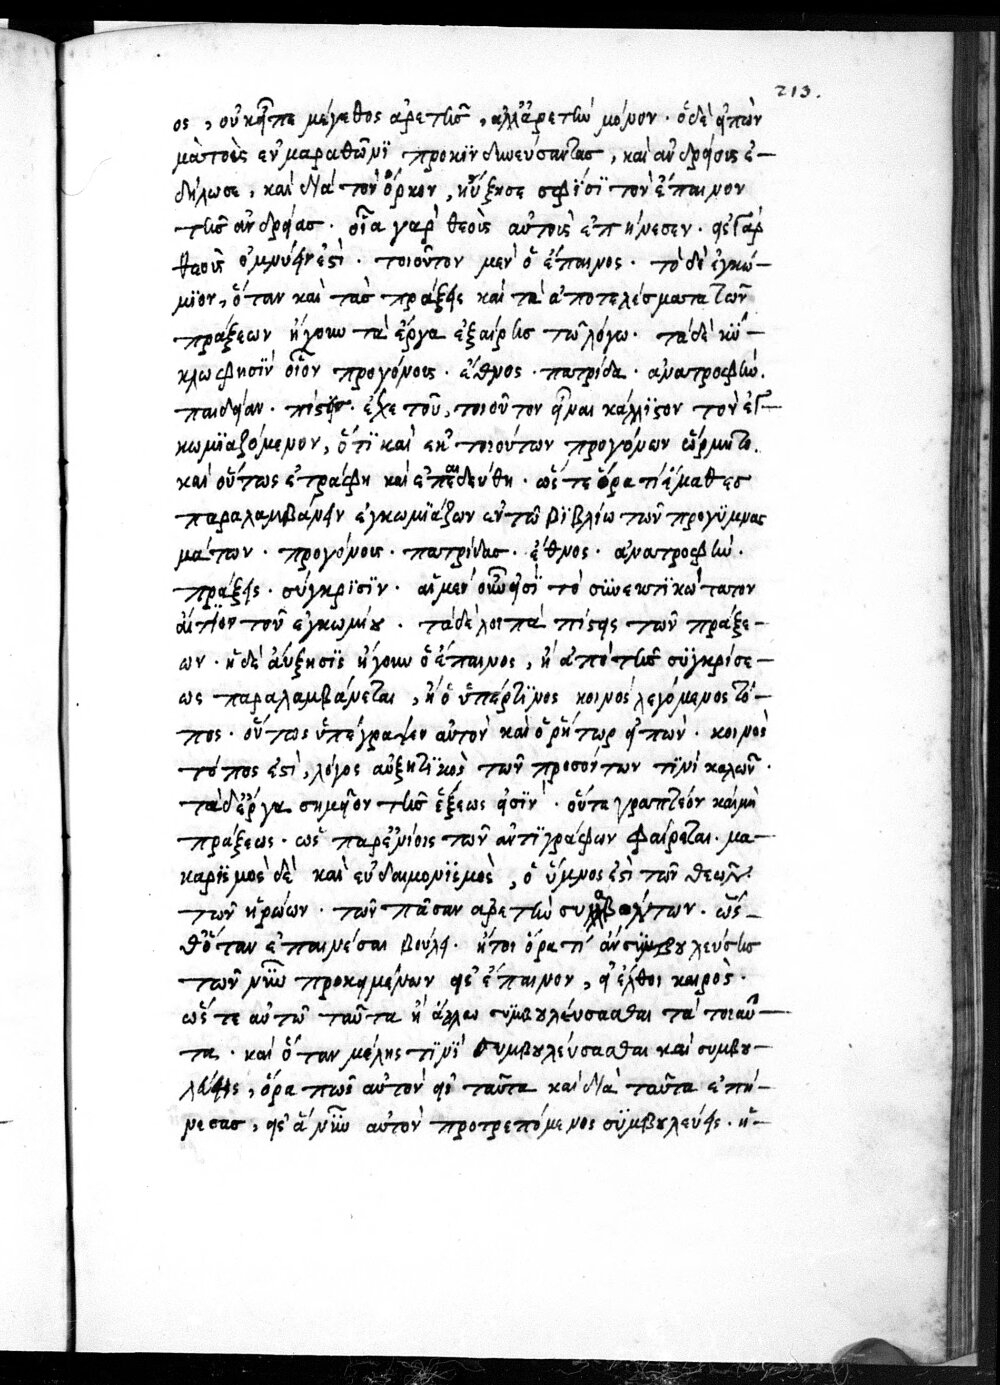 213.
ος, οὐκ εἶπε μέγεθος ἀρετῆς, ἀλλ' ἀρετὴν μόνον. ὁ δὲ εἰπὼν
μὰ τοὺς ἐν μαραθῶνϊ προκϊνδυνεύσαντας, καὶ ἀνδρείους ἐ–
δήλωσε, καὶ διὰ τὸν ὅρκον, ηὔξησε σφϊσϊ τὸν ἔπαινον
τῆς ἀνδρείας. οἷα γαρ θεοὺς αὐτοὺς ἐπήνεσεν. εἰς γὰρ
θεοὺς ὀμνύειν ἐστὶ. τοιοῦτον μὲν ὁ ἔπαινος. τὸ δὲ ἐγκώ–
μϊον, ὅταν καὶ τὰς πράξεις καὶ τὰ ἀποτελέσματα τῶν
πράξεων ἤγουν τὰ ἔργα ἐξαίρης τῶ λόγω. τὰ δὲ κϋ–
κλω φησϊν οἷον προγόνους. ἔθνος. πατρίδα. ἀνατροφὴν.
παιδείαν. πίστεις. εἶχε τοῦ, τοιοῦτον εἶναι κάλλϊστον τὸν ἐγ–
κωμϊαζόμενον, ὅτϊ καὶ ἐκ τοιούτων προγόνων ὥρμητο.
καὶ οὕτως ἐτράφη καὶ ἐπαιδεύθη. ὥστε ὅρα τί ἔμαθες
παραλαμβάνειν ἐγκωμϊάζων ἐν τῶ βϊβλίω τῶν προγϋμνασ
μάτων. προγόνους. πατρίδας. ἔθνος. ἀνατροφὴν.
πράξεις. σύγκρϊσϊν. αἱ μὲν οὖν εἰσϊ τὸ σϋνεκτϊκώτατον
αἴτϊον τοῦ ἐγκωμίου. τὰ δὲ λοιπὰ πίστεις τῶν πράξε–
ων. ἡ δὲ αὔξησϊς ἤγουν ὁ ἔπαινος, ἢ ἀπὸ τῆς σϋγκρίσε–
ως παραλαμβάνεται, ἢ ὁ ὑπέρτϊνος κοινὸς λεγόμενος τό–
πος. οὕτως ὑπέγραψεν αὐτὸν καὶ ὁ ῥήτωρ εἰπὼν. κοινὸς
τόπος ἐστὶ, λόγος αὐξητϊκὸς τῶν προσόντων τϊνὶ καλῶν.
τὰ δ' ἔργα σημεῖον τῆς ἕξεως εἰσϊν. οὕτα γραπτέον καὶ μὴ
πράξεως. ὡς παρ' ἐνίοις τῶν ἀντϊγράφων φαίρεται. μα–
καρϊσμὸς δὲ καὶ εὐδαιμονϊσμὸς, ὁ ὕμνος ἐστὶ τῶν θεῶν
τῶν ἡρώων. τῶν πᾶσαν ἀρετὴν συλλαβόντων. ὥσ–
θ' ὅταν ἐπαινέσαι βούλει. ἤτοι ὅρα τί ἂν σϋμβουλεύσης
τῶν νῦν προκειμένων εἰς ἔπαινον, εἰ ἔλθοι καιρὸς.
ὥστε αὐτῶ ταῦτα ἢ ἄλλω σϋμβουλεύσασθαι τὰ τοιαῦ–
τα. καὶ ὅταν μέλης τϊνϊ συμβουλεύσασθαι καὶ συμβου–
λεύεις, ὅρα πῶς αὐτὸν εἰς ταῦτα καὶ διὰ ταῦτα ἐπῄ–
νεσας, εἰς ἃ νῦν αὐτὸν προτρεπόμενος σϋμβουλεύεις. ἡ–